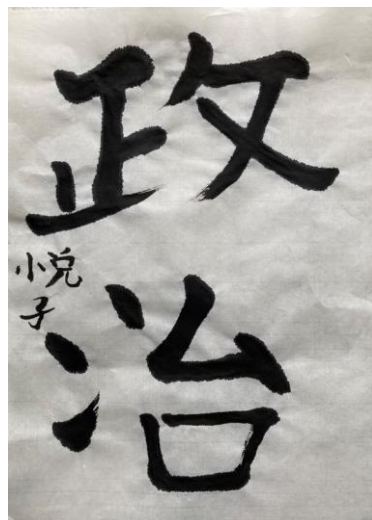 政治
悦子